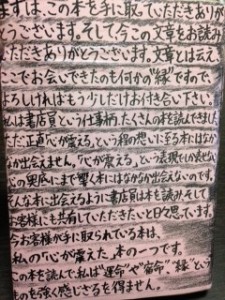 まずは、この本を手に取っていただきありが
とうございます。そして今この文章をお読み
いただきありがとうございます。文章とは云え
ここでお会いできたのも何かの“縁”ですので、
よろしければもう少しだけお付き合い下さい。
私は書店員という仕事柄、たくさんの本を読んできました。
ただ正直「心が震える」という程の想いに至る本にはなか
なか出会えません。「心が震える」という表現でしか表せない
心の奥底にまで響く本にはなかなか出会えないのです。
そんな本に出会えるように書店員は本を読み、そして
お客様にも共有していただきたいと日々思っています。
今お客様が手に取られている本は、
私の「心が震えた」本の一つです。
この本を読んで私は“運命”や“宿命”、“縁”という
ものを強く感じざるを得ません。